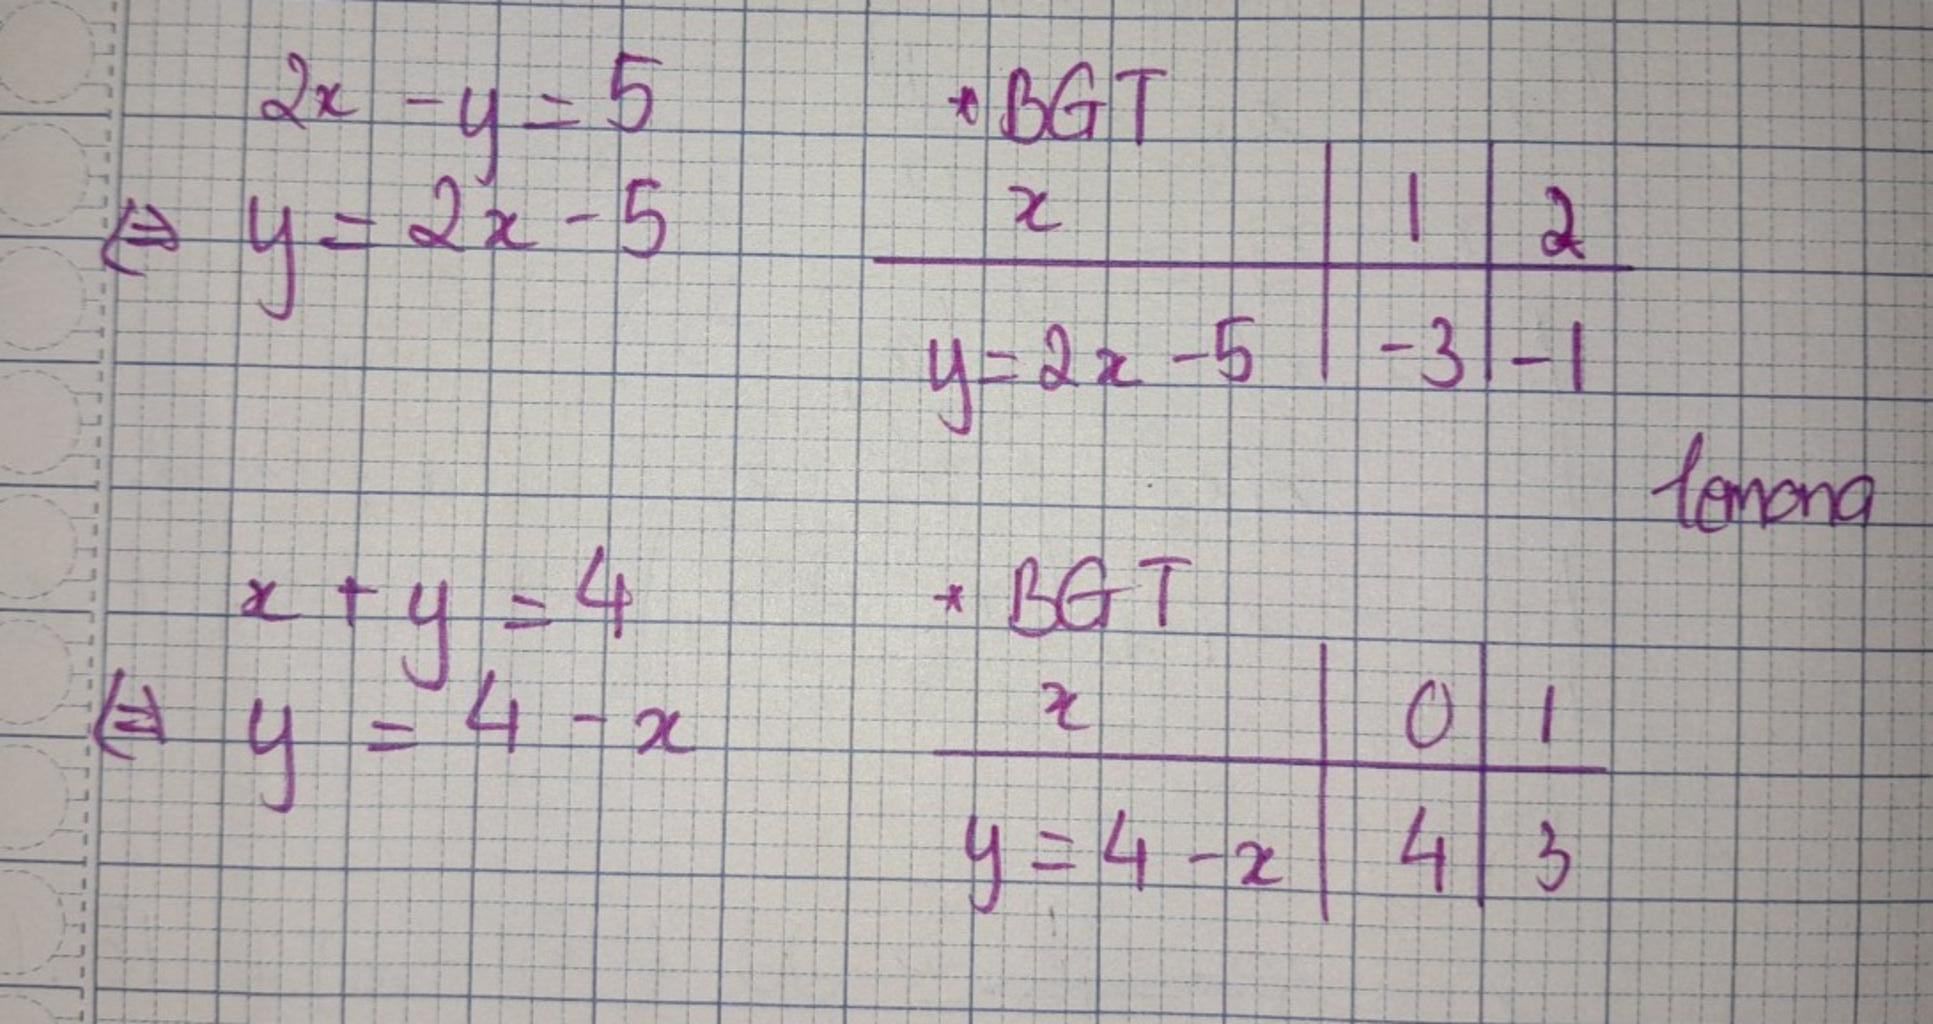 2x - y = 5
⇔ y = 2x - 5
* BGT
x | 1 | 2
y = 2x - 5 | -3 | -1
lemona
x + y = 4
⇔ y = 4 - x
* BGT
x | 0 | 1
y = 4 - x | 4 | 3